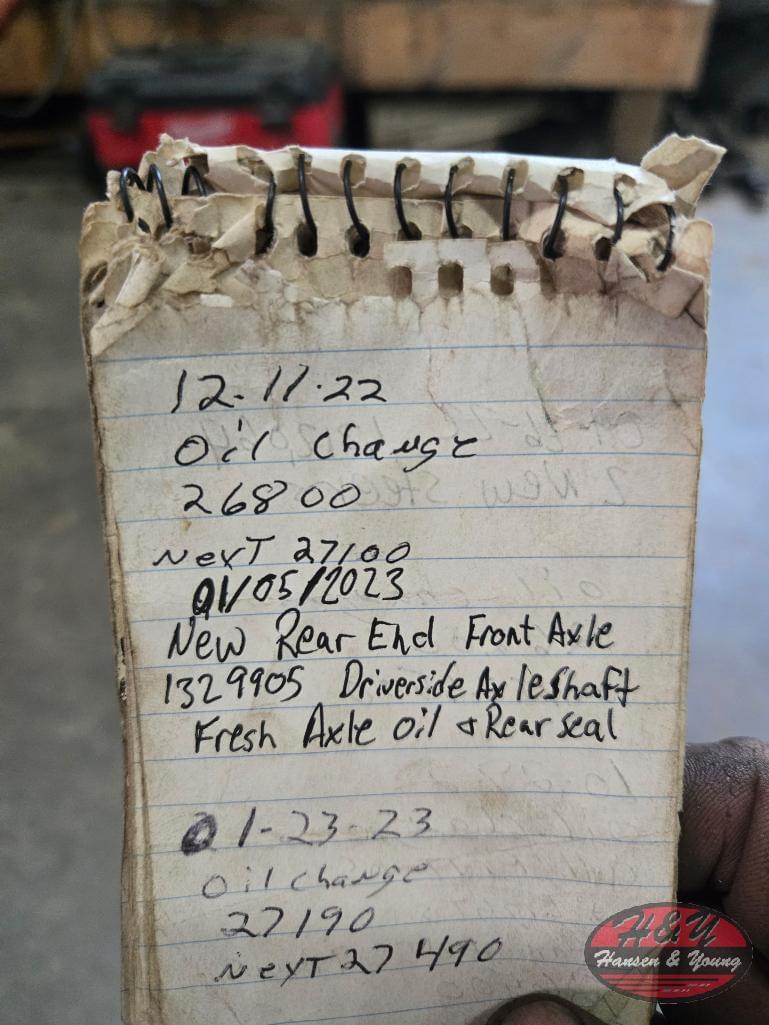 12-11-22
Oil Change
26800
Next 27100
01/05/2023
New Rear End Front Axle
1329905 Driverside Axleshaft
Fresh Axle oil & Rear seal
01-23-23
Oil change
27190
Next 27490
H&Y
Hansen & Young